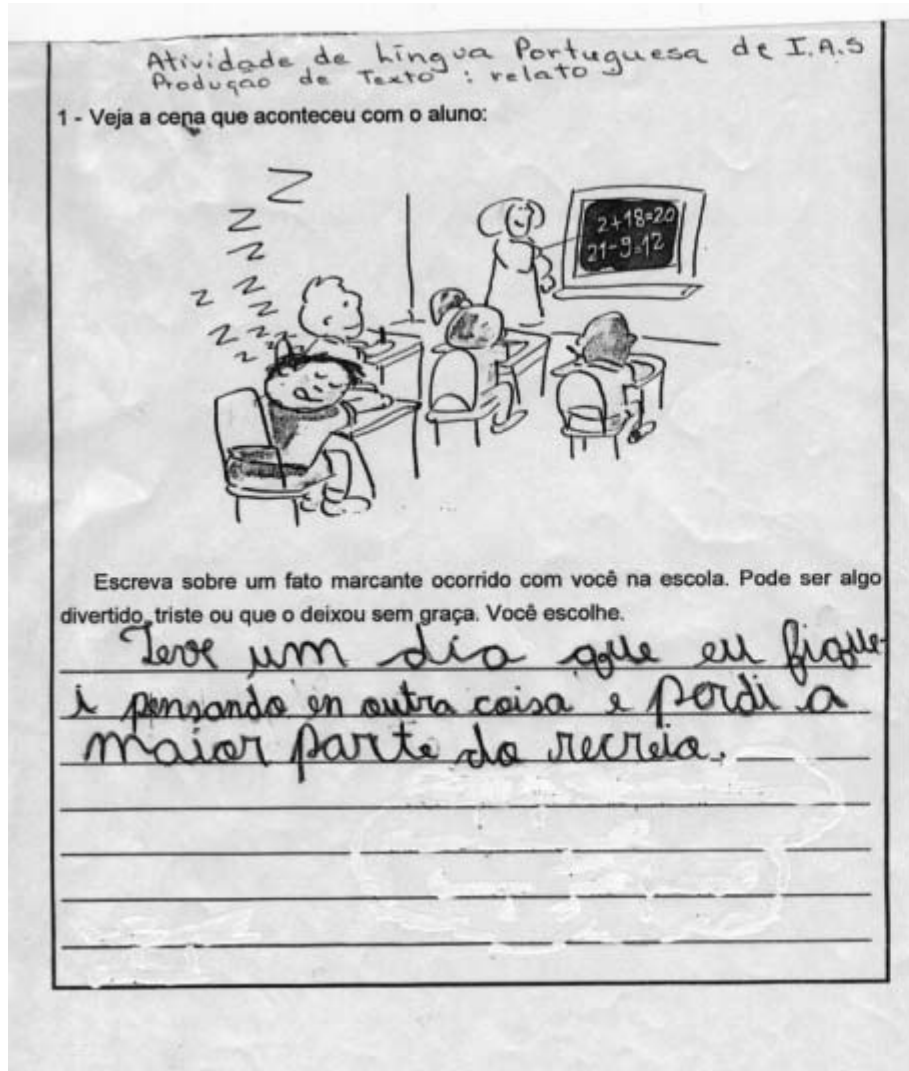 Atividade de Língua Portuguesa de I.A.S
Produção de Texto : relato
1 - Veja a cena que aconteceu com o aluno:
Z
Z
Z
Z Z
Z Z
Z Z Z
Z Z
2+18=20
21-9=12
Escreva sobre um fato marcante ocorrido com você na escola. Pode ser algo
divertido, triste ou que o deixou sem graça. Você escolhe.
Teve um dia que eu fique-
i pensando en outra coisa e perdi a
maior parte do recreio.